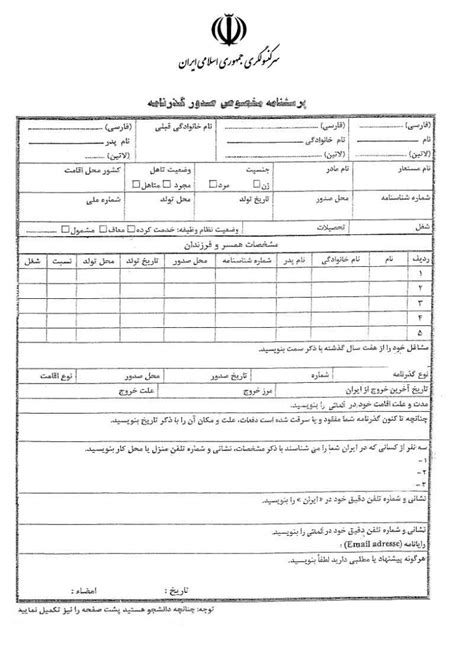 سرکنسولگری جمهوری اسلامی ایران
پرسشنامه مخصوص صدور گذرنامه
(فارسی) ............ نام خانوادگی قبلی (فارسی) ............ (فارسی) ............
نام ............ نام خانوادگی ............ نام پدر ............
(لاتین) ............ (لاتین) ............ (لاتین) ............
نام مستعار نام مادر جنسیت زن□ مرد□ وضعیت تاهل مجرد□ متاهل□ کشور محل اقامت
شماره شناسنامه محل صدور تاریخ تولد محل تولد شماره ملی
شغل تحصیلات وضعیت نظام وظیفه: خدمت کرده□ معاف□ مشمول□ ............
مشخصات همسر و فرزندان
ردیف نام نام خانوادگی نام پدر شماره شناسنامه محل صدور تاریخ تولد محل تولد نسبت شغل
۱
۲
۳
۴
۵
مشاغل خود را از هفت سال گذشته با ذکر سمت بنویسید.
نوع گذرنامه شماره تاریخ صدور محل صدور نوع اقامت
تاریخ آخرین خروج از ایران مرز خروج علت خروج
مدت و علت اقامت خود در آلمانی را بنویسید.
چنانچه تا کنون گذرنامه شما مفقود و یا سرقت شده است دفعات، علت و مکان آن را با ذکر تاریخ بنویسید.
سه نفر از کسانی که در ایران شما را می شناسند با ذکر مشخصات، نشانی و شماره تلفن منزل یا محل کار بنویسید.
۱ -
۲ -
۳ -
نشانی و شماره تلفن دقیق خود در « ایران » را بنویسید.
نشانی و شماره تلفن دقیق خود در آلمانی را بنویسید.
رایانامه (Email adresse) :
هرگونه پیشنهاد یا مطلبی دارید لطفاً بنویسید.
تاریخ : امضاء :
توجه: چنانچه دانشجو هستید پشت صفحه را نیز تکمیل نمایید